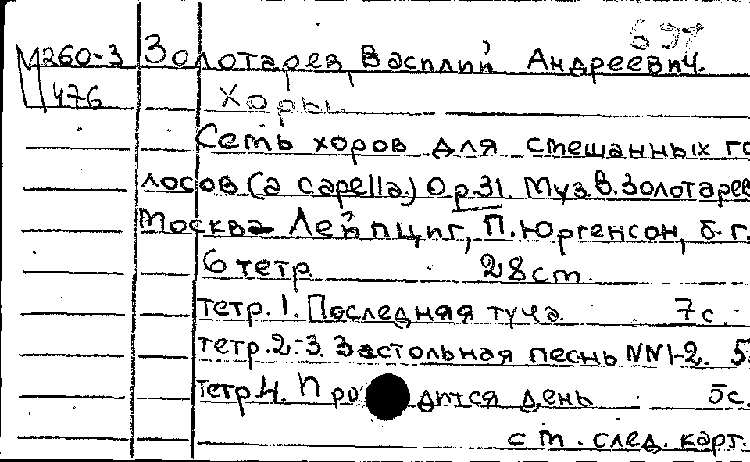 597
М260-3 Золотарев, Василий Андреевич.
476 Хоры.
Семь хоров для смешанных го
лосов (a capella) Op.31. Муз.В.Золотарев
Москва - Лейпциг, П.Юргенсон, б.г.
6 тетр. 28cm.
тетр.1. Последняя туча 7с.
тетр.2-3. Застольная песнь NN1-2. 5
тетр.4. дится день 5с.
см. след. карт.